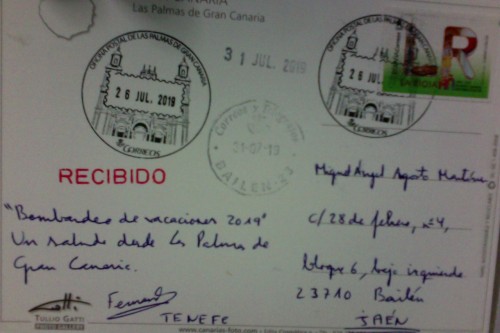 CANARIA
Las Palmas de Gran Canaria
OFICINA POSTAL DE LAS PALMAS DE GRAN CANARIA
26 JUL. 2019
CORREOS
31 JUL. 2019
OFICINA POSTAL DE LAS PALMAS DE GRAN CANARIA
26 JUL. 2019
CORREOS
LR
LA RIOJA
Correos y
BAILEN-23
RECIBIDO
"Bombardeo de vacaciones 2019"
Un saludo desde Las Palmas de
Gran Canaria.
Fernando
TENEFE
TULLIO GATTI
PHOTO GALLERY
Miguel Ángel
c/ 28 de febrero, nº4,
bloque 6, bajo izquierda
23710 Bailén
JAÉN
www.canarias-foto.com